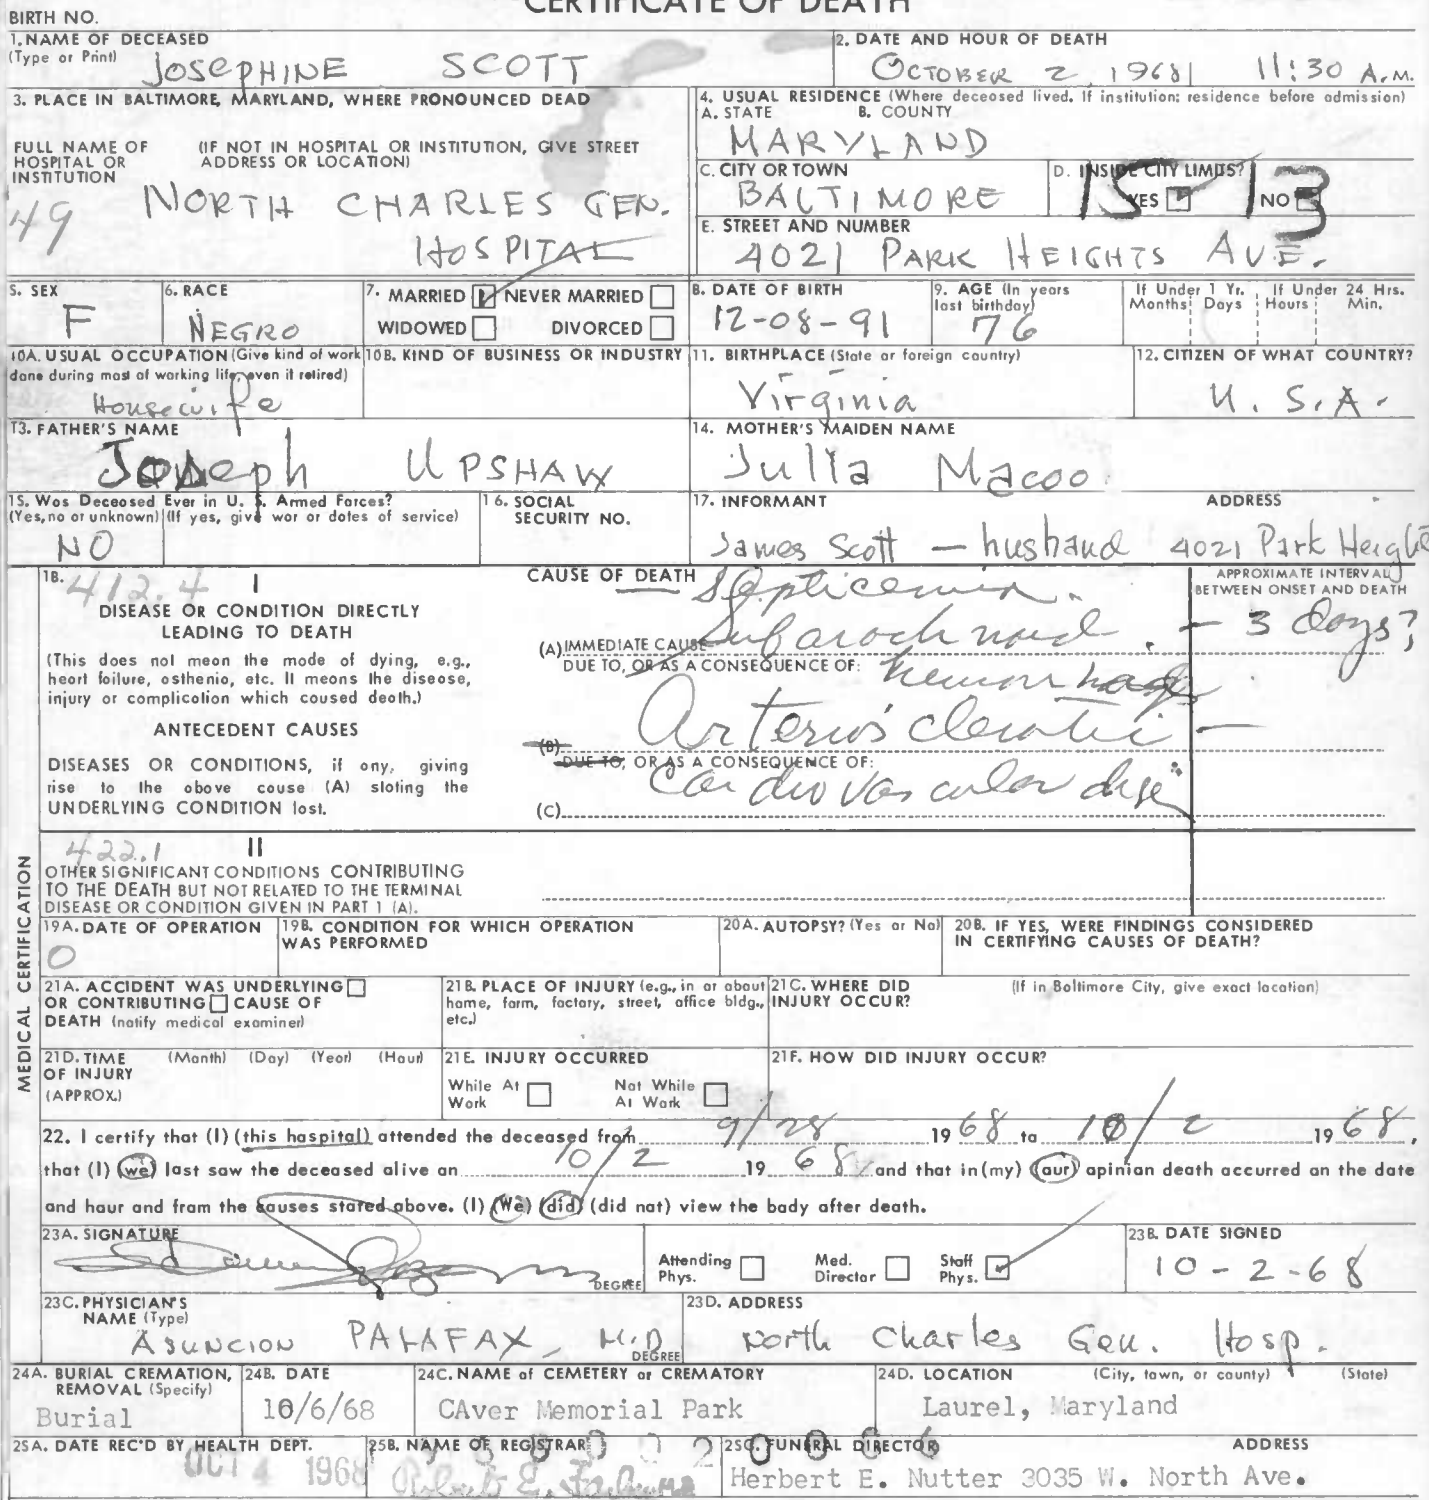 CERTIFICATE OF DEATH
BIRTH NO.
1. NAME OF DECEASED
(Type or Print)
JOSEPHINE SCOTT
2. DATE AND HOUR OF DEATH
OCTOBER 2, 1968 11:30 A.M.
3. PLACE IN BALTIMORE, MARYLAND, WHERE PRONOUNCED DEAD
FULL NAME OF HOSPITAL OR INSTITUTION
(IF NOT IN HOSPITAL OR INSTITUTION, GIVE STREET ADDRESS OR LOCATION)
49
NORTH CHARLES GEN.
HOSPITAL
4. USUAL RESIDENCE (Where deceased lived. If institution: residence before admission)
A. STATE B. COUNTY
MARYLAND
C. CITY OR TOWN
BALTIMORE
D. INSIDE CITY LIMITS?
YES NO
15 13
E. STREET AND NUMBER
4021 PARK HEIGHTS AVE.
5. SEX
F
6. RACE
NEGRO
7. MARRIED NEVER MARRIED
WIDOWED DIVORCED
8. DATE OF BIRTH
12-08-91
9. AGE (In years last birthday)
76
If Under 1 Yr. If Under 24 Hrs.
Months Days Hours Min.
10A. USUAL OCCUPATION (Give kind of work done during most of working life, even if retired)
Housewife
10B. KIND OF BUSINESS OR INDUSTRY
11. BIRTHPLACE (State or foreign country)
Virginia
12. CITIZEN OF WHAT COUNTRY?
U. S. A.
13. FATHER'S NAME
Joseph UPSHAW
14. MOTHER'S MAIDEN NAME
Julia Macoo
15. Was Deceased Ever in U. S. Armed Forces?
(Yes, no or unknown) (If yes, give war or dates of service)
NO
16. SOCIAL SECURITY NO.
17. INFORMANT ADDRESS
James Scott — husband 4021 Park Height
18. 412.4 I
CAUSE OF DEATH
APPROXIMATE INTERVAL BETWEEN ONSET AND DEATH
DISEASE OR CONDITION DIRECTLY LEADING TO DEATH
(This does not mean the mode of dying, e.g., heart failure, asthenia, etc. It means the disease, injury or complication which caused death.)
Septicemia.
(A) IMMEDIATE CAUSE Subarachnoid - 3 days?
DUE TO, OR AS A CONSEQUENCE OF: hemorrhage
ANTECEDENT CAUSES
DISEASES OR CONDITIONS, if any, giving rise to the above cause (A) stating the UNDERLYING CONDITION last.
(B) Arteriosclerotic -
DUE TO, OR AS A CONSEQUENCE OF:
Cardiovascular dise
(C)
MEDICAL CERTIFICATION
422.1 II
OTHER SIGNIFICANT CONDITIONS CONTRIBUTING TO THE DEATH BUT NOT RELATED TO THE TERMINAL DISEASE OR CONDITION GIVEN IN PART 1 (A).
19A. DATE OF OPERATION
0
19B. CONDITION FOR WHICH OPERATION WAS PERFORMED
20A. AUTOPSY? (Yes or No)
20B. IF YES, WERE FINDINGS CONSIDERED IN CERTIFYING CAUSES OF DEATH?
21A. ACCIDENT WAS UNDERLYING OR CONTRIBUTING CAUSE OF DEATH (notify medical examiner)
21B. PLACE OF INJURY (e.g., in or about home, farm, factory, street, office bldg., etc.)
21C. WHERE DID INJURY OCCUR?
(If in Baltimore City, give exact location)
21D. TIME OF INJURY (APPROX.)
(Month) (Day) (Year) (Hour)
21E. INJURY OCCURRED
While At Work Not While At Work
21F. HOW DID INJURY OCCUR?
22. I certify that (I) (this hospital) attended the deceased from 9/28 1968 to 10/2 1968,
that (I) (we) last saw the deceased alive on 10/2 1968 and that in (my) (our) opinion death occurred on the date
and hour and from the causes stated above. (I) (We) (did) (did not) view the body after death.
23A. SIGNATURE
DEGREE
Attending Phys. Med. Director Staff Phys.
23B. DATE SIGNED
10-2-68
23C. PHYSICIAN'S NAME (Type)
ASUNCION PALAFAX, M.D
DEGREE
23D. ADDRESS
North Charles Gen. Hosp.
24A. BURIAL CREMATION, REMOVAL (Specify)
Burial
24B. DATE
10/6/68
24C. NAME of CEMETERY or CREMATORY
CAver Memorial Park
24D. LOCATION (City, town, or county) (State)
Laurel, Maryland
25A. DATE REC'D BY HEALTH DEPT.
OCT 4 1968
25B. NAME OF REGISTRAR
25C. FUNERAL DIRECTOR ADDRESS
Herbert E. Nutter 3035 W. North Ave.